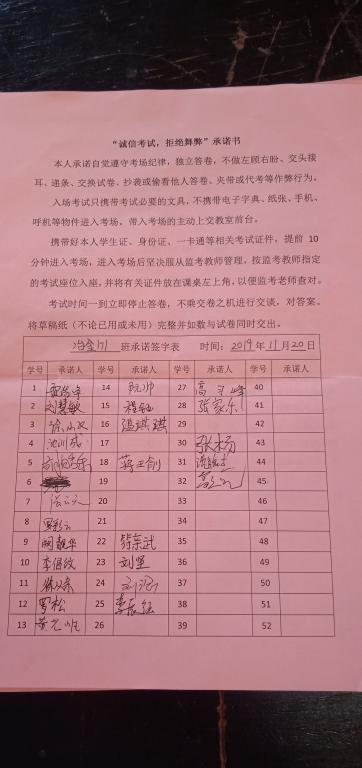 “诚信考试，拒绝舞弊”承诺书
本人承诺自觉遵守考场纪律，独立答卷，不做左顾右盼、交头接
耳、递条、交换试卷、抄袭或偷看他人答卷、夹带或代考等作弊行为。
入场考试只携带考试必要的文具，不携带电子字典、纸张、手机、
呼机等物件进入考场，带入考场的主动上交教室前台。
携带好本人学生证、身份证、一卡通等相关考试证件，提前 10
分钟进入考场，进入考场后坚决服从监考教师管理，按监考教师指定
的考试座位入座，并将有关证件放在课桌左上角，以便监考老师查对。
考试时间一到立即停止答卷，不乘交卷之机进行交谈，对答案。
将草稿纸（不论已用或未用）完整并如数与试卷同时交出。
班承诺签字表 时间：2019年11月20日
学号 承诺人 学号 承诺人 学号 承诺人 学号 承诺人
1 14 阮帅 27 40
2 刘慧敏 15 28 张家乐 41
3 16 温琪琪 29 42
4 17 30 张杨 43
5 18 31 44
6 19 32 45
7 20 33 46
8 21 34 47
9 22 35 48
10 李偲政 23 刘坚 36 49
11 24 37 50
12 罗松 25 38 51
13 26 39 52